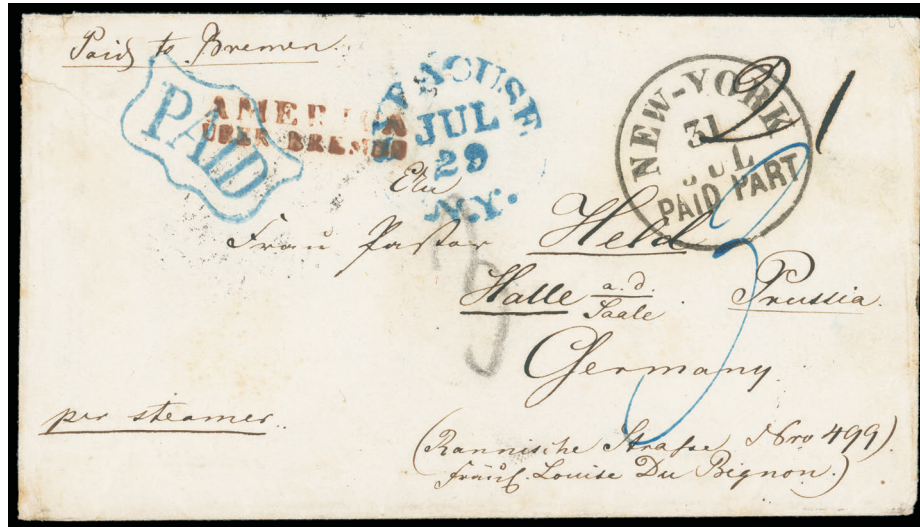 Paid to Bremen.
PAID
AMERICA
ÜBER BREMEN
SYRACUSE
JUL
29
N.Y.
NEW-YORK
31
JUL
PAID PART
1
3
Frau Pastor Held
Halle a.d. Saale. Prussia.
Germany.
per steamer.
(Rannische Straße Nro 499)
Fräul. Louise Du Bignon.)